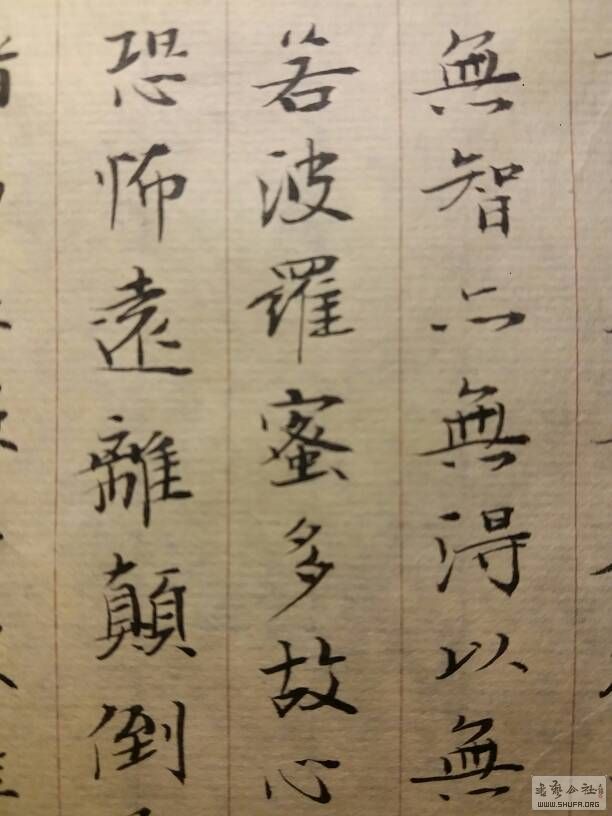 無智亦無得以無
若波羅蜜多故心
恐怖遠離顛倒
WWW.SHUFA.ORG